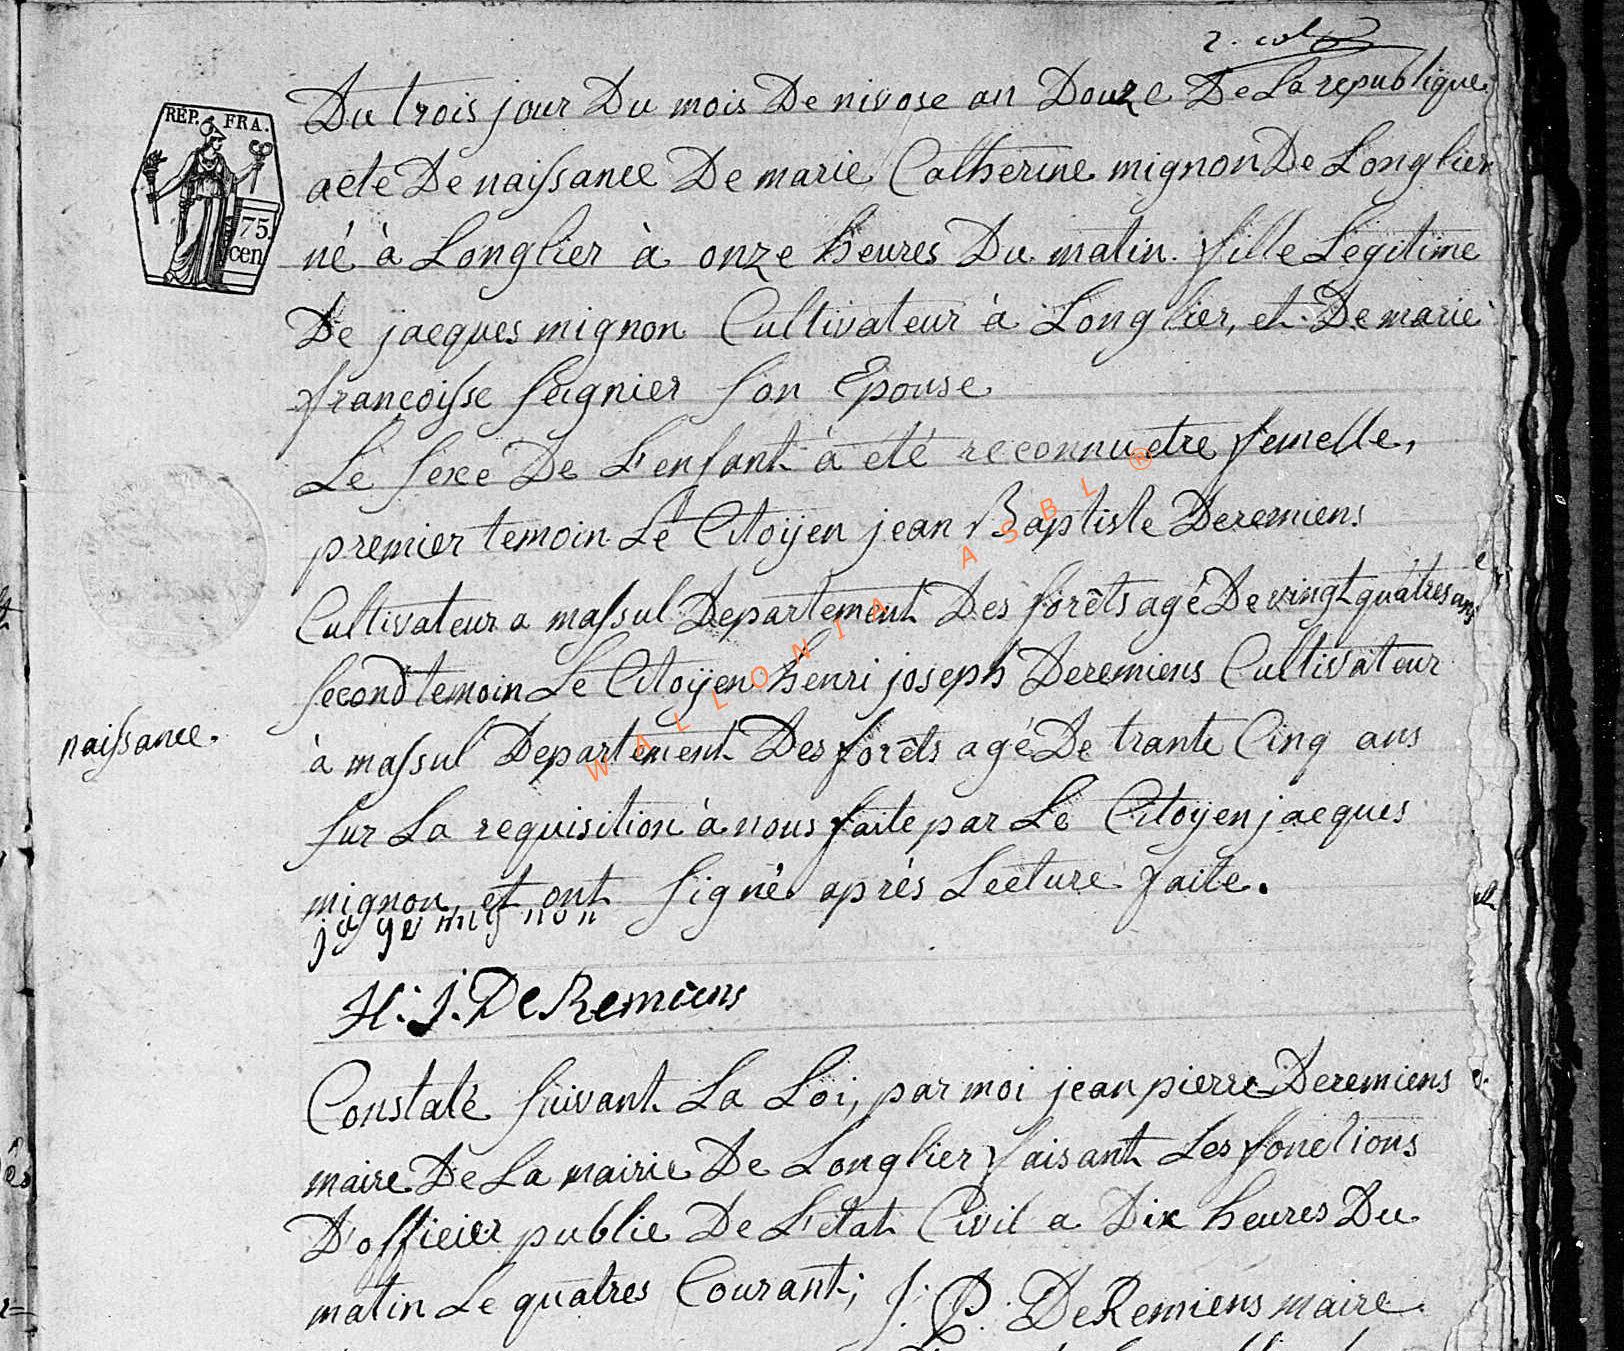 2. rol
Du trois jour Du mois De nivose an Douze De La republique
acte De naissance De marie Catherine mignon De Longlier
RÉP. FRA.
75.
cen.
né à Longlier à onze heures Du matin. fille Legitime
De jacques mignon Cultivateur à Longlier, et De marie
françoisse seignier son Epouse
Le sexe De L'enfant à été reconnu etre femelle,
premier temoin Le Citoÿen jean Baptiste Deremiens
Cultivateur a massul Departement Des forêts agé De vingt quatres ans
second temoin Le Citoÿen henri joseph Deremiens Cultivateur
naissance.
à massul Departement Des forêts agé De trante Cinq ans
sur La requisition à nous faite par Le Citoÿen jacques
mignon, et ont signé aprés Lecture faite.
jaqe mignon
H. J. DeRemiens
Constaté suivant La Loi, par moi jean pierre Deremiens
maire De La mairie De Longlier faisant Les fonctions
D'officier public De L'etat Civil a Dix heures Du
matin Le quatres Courant; J. P. DeRemiens maire
WALLONIA ASBL ®